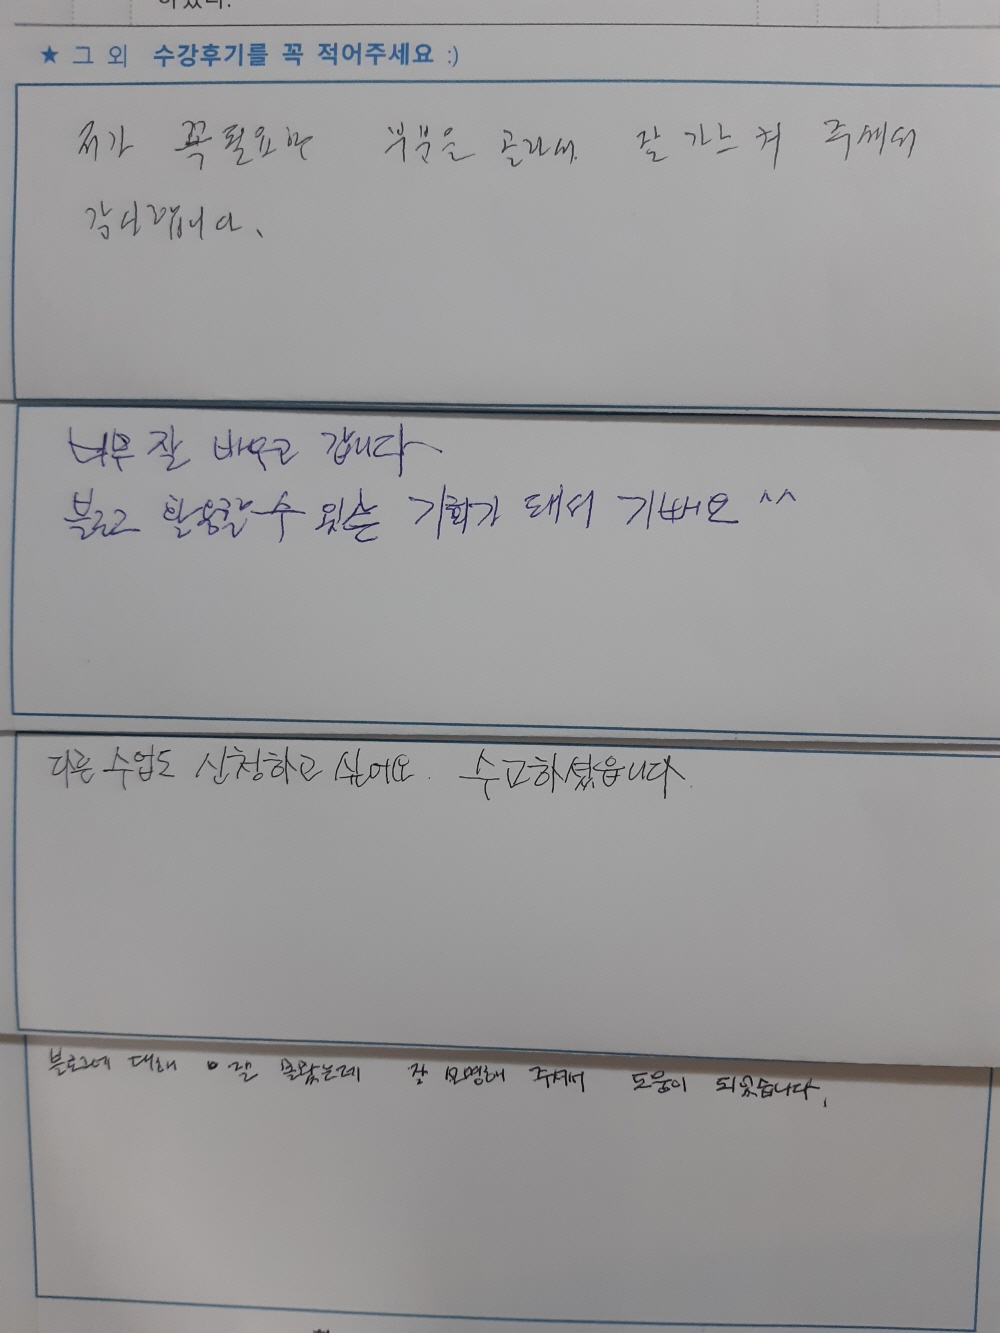 ★ 그 외 수강후기를 꼭 적어주세요 :)
저가 꼭 필요한 부분을 골라서 잘 가르쳐 주셔서
감사드립니다.
너무 잘 배우고 갑니다
블로그 활용할수 있는 기회가 돼서 기뻐요 ^^
다른 수업도 신청하고 싶어요. 수고하셨습니다.
블로그에 대해 잘 몰랐는데 잘 설명해 주셔서 도움이 되었습니다.